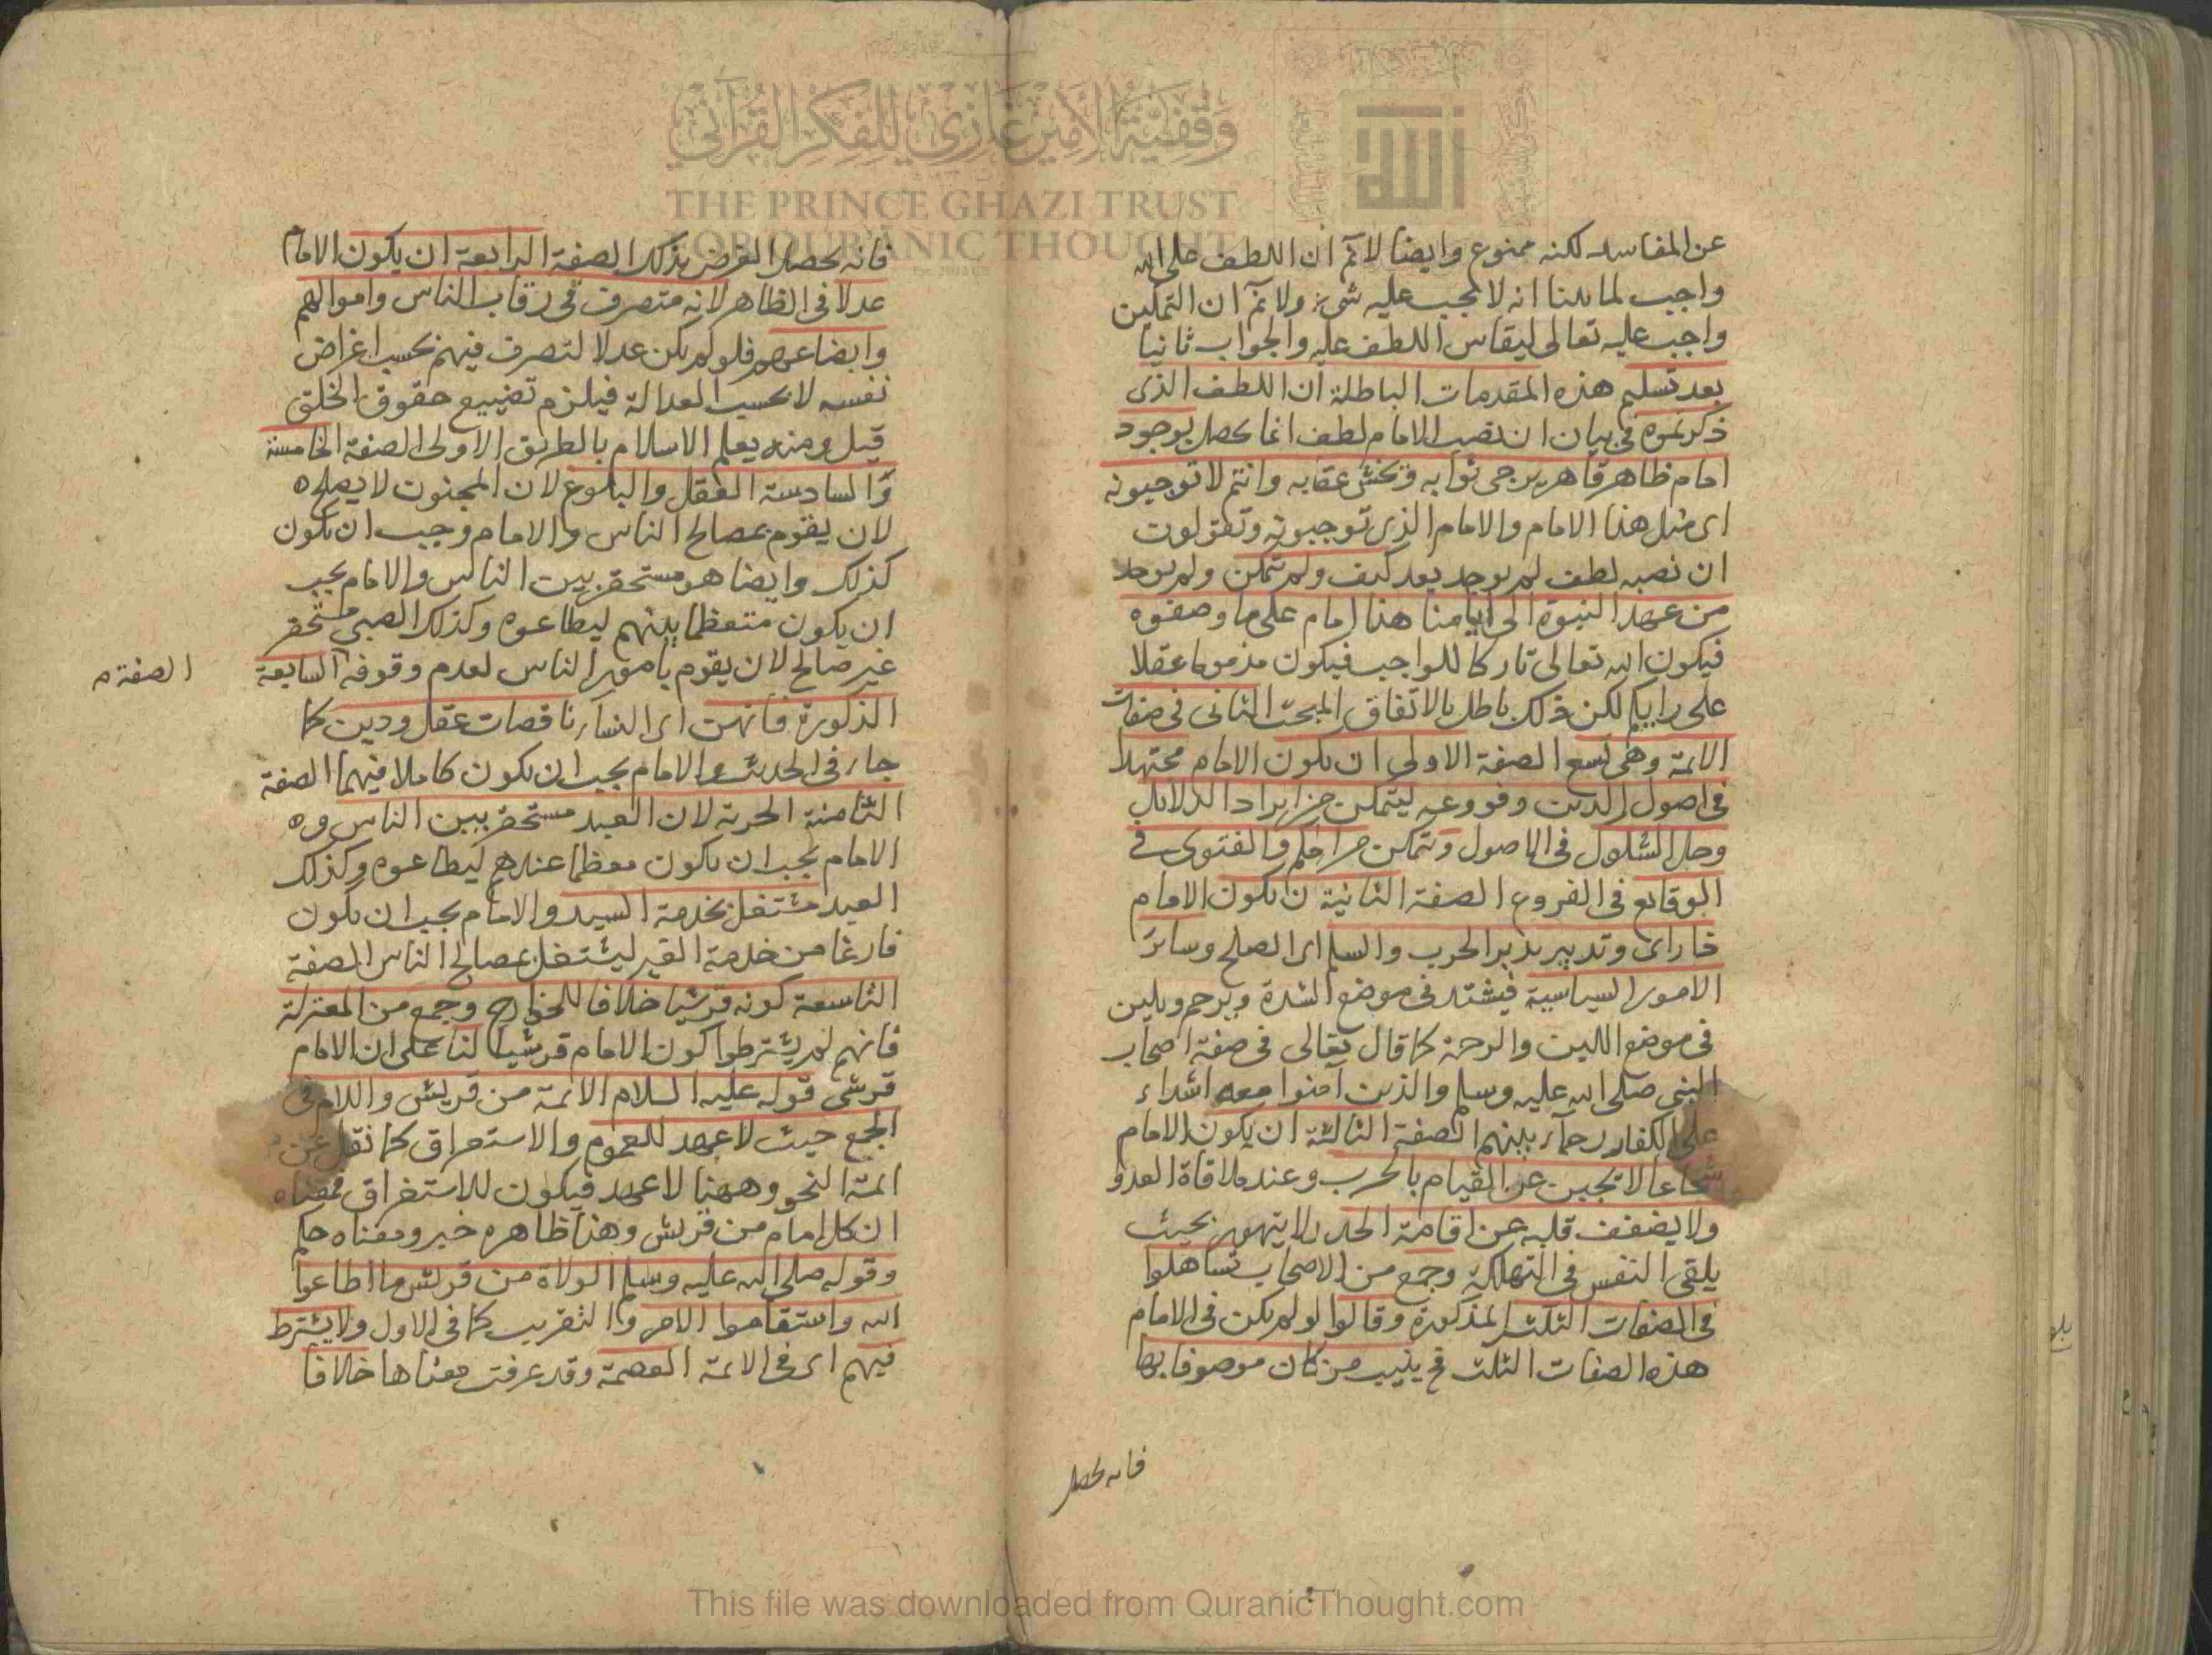 وقفية الأمير غازي للفكر القرآني
THE PRINCE GHAZI TRUST
FOR QURANIC THOUGHT
عن المفاسد لكنه ممنوع وايضا لانم ان اللطف على الله
واجب لما بينا انه لا يجب عليه شئ ولانم ان التمكين
واجب عليه تعالى ليقاس اللطف عليه والجواب ثانيا
بعد تسليم هذه المقدمات الباطلة ان اللطف الذى
ذكرتموه فى بيان ان نصب الامام لطف انما يحصل بوجود
امام ظاهر قاهر يرجى ثوابه ويخشى عقابه وانتم لا توجبونه
اى مثل هذا الامام والامام الذى توجبونه وتقولون
ان نصبه لطف لم يوجد بعد كيف ولم يتمكن ولم يوجد
من عهد النبوة الى ايامنا هذا امام على ما وصفوه
فيكون الله تعالى تاركا للواجب فيكون مذموما عقلا
على رايكم لكن ذلك باطل بالاتفاق المبحث الثانى فى صفات
الائمة وهى تسع الصفة الاولى ان يكون الامام مجتهدا
فى اصول الدين وفروعه ليتمكن من ايراد الدلايل
وحل الشكوك فى الاصول ويتمكن من الحكم والفتوى فى
الوقايع فى الفروع الصفة الثانية ان يكون الامام
ذا راى وتدبير يدبر الحرب والسلم اى الصلح وسائر
الامور السياسية فيشتد فى موضع الشدة ويرحم ويلين
فى موضع اللين والرحمة كما قال تعالى فى صفة اصحاب
النبى صلى الله عليه وسلم والذين آمنوا معه اشداء
على الكفار رحماء بينهم الصفة الثالثة ان يكون الامام
شجاعا لا يجبن عن القيام بالحرب وعند ملاقاة العدو
ولا يضعف قلبه عن اقامة الحد ولا يتهور بحيث
يلقى النفس فى التهلكة وجمع من الاصحاب تساهلوا
فى الصفات الثلث المذكورة وقالوا لو لم يكن فى الامام
هذه الصفات الثلث فح ينيب من كان موصوفا بها
فانه يحصل
فانه يحصل الغرض بذلك الصفة الرابعة ان يكون الامام
عدلا فى الظاهر لانه متصرف فى رقاب الناس واموالهم
وابضاعهم فلو لم يكن عدلا لتصرف فيهم بحسب اغراض
نفسه لا بحسب العدالة فيلزم تضييع حقوق الخلق
قيل ومنه يعلم الاسلام بالطريق الاولى الصفة الخامسة
والسادسة العقل والبلوغ لان المجنون لا يصلح
لان يقوم بمصالح الناس والامام وجب ان يكون
كذلك وايضا هو مستحقر بين الناس والامام يجب
ان يكون متعظما بينهم ليطاعوه وكذلك الصبى مستحقر
غير صالح لان يقوم بامور الناس لعدم وقوفه السابعة
الصفة م
الذكورة فانهن اى النساء ناقصات عقل ودين كما
جاء فى الحديث والامام يجب ان يكون كاملا فيهما الصفة
الثامنة الحرية لان العبد مستحقر بين الناس و
الامام يجب ان يكون معظما عندهم ليطاعوه وكذلك
العبد مشتغل بخدمة السيد والامام يجب ان يكون
فارغا من خدمة الغير ليشتغل بمصالح الناس الصفة
التاسعة كونه قرشيا خلافا للخوارج وجمع من المعتزلة
فانهم لم يشترطوا كون الامام قرشيا لنا على ان الامام
قرشى قوله عليه السلام الائمة من قريش واللام فى
الجمع حيث لا عهد للعموم والاستغراق كما نقل عن
ائمة النحو وههنا لا عهد فيكون للاستغراق فمعناه
ان كل امام من قريش وهذا ظاهره خبر ومعناه حكم
وقوله صلى الله عليه وسلم الولاة من قريش ما اطاعوا
الله واستقاموا الامر والتقريب كما فى الاول ولا يشترط
فيهم اى فى الائمة العصمة وقد عرفت معناها خلافا
This file was downloaded from QuranicThought.com